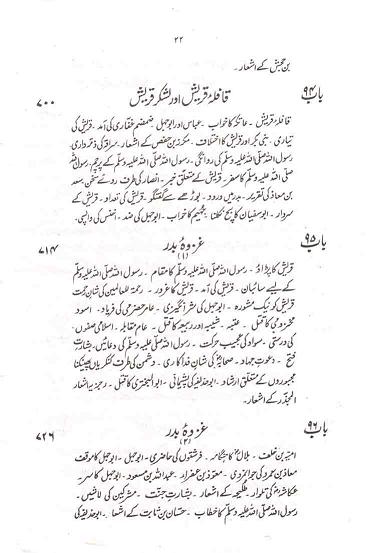 ۲۲
بن جحش کے اشعار ۔
باب ۹۴ قافلۂ قریش اور لشکرِ قریش ۷۰۰
قافلۂ قریش ۔ عاتکہ کا خواب ۔ عباس اور ابوجہل ۔ ضمضم غفاری کی آمد ۔ قریش کی
تیاری ۔ بنی بکر اور قریش کا اختلاف ۔ مکرز بن حفص کے اشعار ۔ سراقہ کی ذمہ داری ۔
رسول اللہ صلی اللہ علیہ وسلم کی روانگی ۔ رسول اللہ صلی اللہ علیہ وسلم کے پرچم ۔ رسول اللہ
صلی اللہ علیہ وسلم کا سفر ۔ قریش کے متعلق خبر ۔ انصار کی طرف روئے سخن ۔ سعد
بن معاذ کی تقریر ۔ بدر میں ورود ۔ بوڑھے سے گفتگو ۔ قریش کی تعداد ۔ قریش کے
سردار ۔ ابوسفیان کا بچ نکلنا ۔ جہیم کا خواب ۔ ابوجہل کی ضد ۔ اخنس کی واپسی ۔
باب ۹۵ غزوۂ بدر ۷۱۴
(۱)
قریش کا پڑاؤ ۔ رسول اللہ صلی اللہ علیہ وسلم کا مقام ۔ رسول اللہ صلی اللہ علیہ وسلم
کے لیے سائبان ۔ قریش کی آمد ۔ قریش کا غرور ۔ رحمت للعالمین کی شانِ رحمت
قریش کو نیک مشورہ ۔ ابوجہل کی شر انگیزی ۔ عامر حضرمی کی فریاد ۔ اسود
مخزومی کا قتل ۔ عتبہ ۔ شیبہ اور ربیعہ کا قتل ۔ عام مقابلہ ۔ اسلامی صفوں
کی درستی ۔ سواد کی عجیب حرکت ۔ رسول اللہ صلی اللہ علیہ وسلم کی دعائیں ۔ بشارت
فتح ۔ دعوتِ جہاد ۔ صحابہؓ کی شانِ فداکاری ۔ دشمن کی طرف کنکریاں پھینکنا
مجبوروں کے متعلق ارشاد ۔ ابوحذیفہ کی پشیمانی ۔ ابوالبختری کا قتل ۔ رجزیہ اشعار
المجذر کے اشعار ۔
باب ۹۶ غزوۂ بدر ۷۲۶
(۲)
امیہ بن خلف ۔ بلالؓ کا ہنگامہ ۔ فرشتوں کی حاضری ۔ ابوجہل ۔ ابوجہل کا موقف
معاذ بن عمرو کی جوانمردی ۔ معوذ بن عفراء ۔ عبداللہ بن مسعود ۔ ابوجہل کا سر ۔
عکاشہؓ کی تلوار ۔ طلیحہ کے اشعار ۔ بشارتِ جنت ۔ مشرکین کی لاشیں ۔
رسول اللہ صلی اللہ علیہ وسلم کا خطاب ۔ حسان بن ثابت کے اشعار ۔ ابوحذیفہ کی